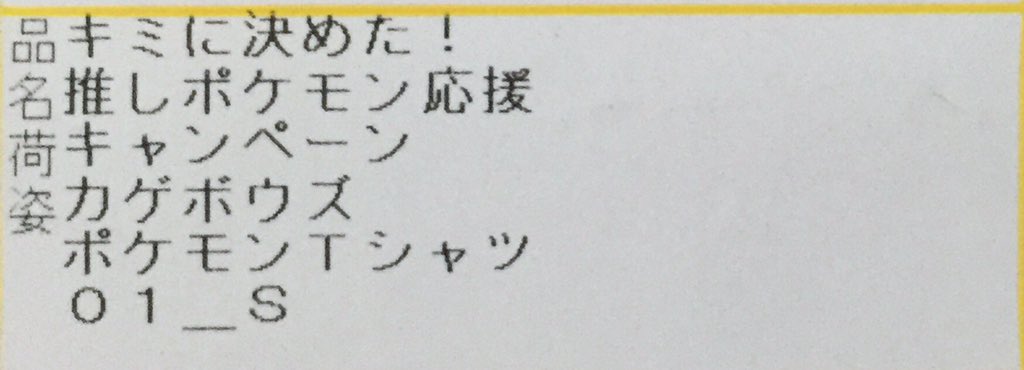 品名荷姿
キミに決めた！
推しポケモン応援
キャンペーン
カゲボウズ
ポケモンTシャツ
０１＿S